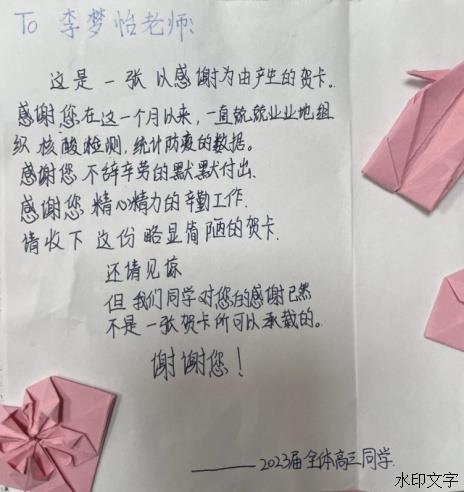 To 李梦怡老师:
这是一张以感谢为由产生的贺卡。
感谢您在这一个月以来,一直兢兢业业地组
织核酸检测,统计防疫的数据。
感谢您不辞辛劳的默默付出.
感谢您精心精力的辛勤工作.
请收下这份略显简陋的贺卡.
还请见谅
但我们同学对您的感谢已然
不是一张贺卡所可以承载的。
谢谢您!
——2023届全体高三同学.
水印文字